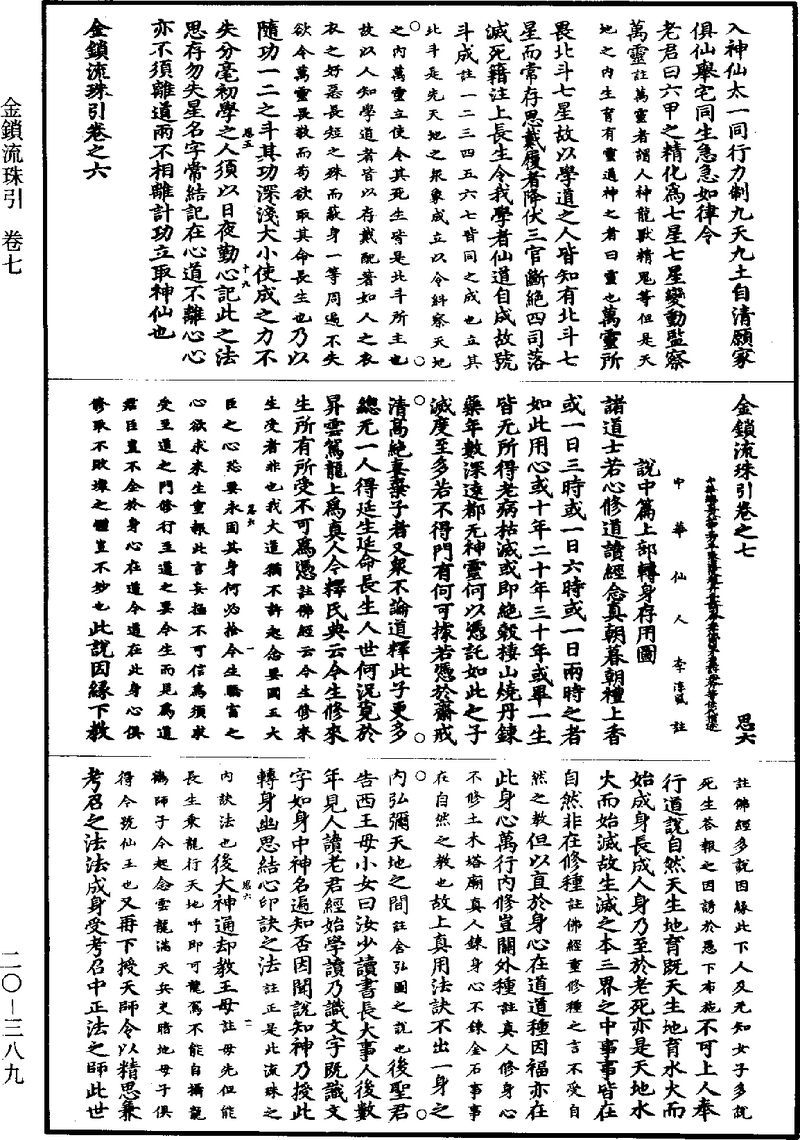 入神仙太一同行力制九天九土自清願家
俱仙舉宅同生急急如律令
老君曰六甲之精化爲七星七星變動監察
萬靈註萬靈者謂人神龍獸精鬼等但是天
地之內生育有靈通神之者曰靈也萬靈所
畏北斗七星故以學道之人皆知有北斗七
星而常存思戴履者降伏三官斷絕四司落
滅死籍注上長生令我學者仙道自成故號
斗成註一二三四五六七皆同之成也立其
北斗是先天地之炁象成立以令糾察天地
之內萬靈立使令其死生皆是北斗所主也
故以人知學道者皆以存戴配著如人之衣
衣之好惡長短之殊而蔽身一等周遍不失
欲令萬靈畏敬而苟欲取其命長生也乃以
隨功一二之斗其功深淺大小使成之力不
思五 十九
失分毫初學之人須以日夜勤心記此之法
思存勿失星名字常結記在心道不離心心
亦不須離道兩不相離計功立取神仙也
金鎖流珠引卷之六
金鎖流珠引 卷七
金鎖流珠引卷之七 思六
中華仙人李淳風註
說中篇上部轉身存用圖
諸道士若心修道讀經念真朝暮朝禮上香
或一日三時或一日六時或一日兩時之者
如此用心或十年二十年三十年或畢一生
皆无所得老病枯滅或即絕穀棲山燒丹鍊
藥年數深遠都无神靈何以憑託如此之子
滅度至多若不得門有何可據若憑於齋戒
清高絕真藥子者又衆不論道釋此子更多
總无一人得延生延命長生人世何況寛於
昇雲駕龍上爲真人令釋民典云今生修來
生所有所受不可爲憑註佛經云今生修來
生受者非也我大道猶不許起念要國王大
思六 一
臣之心恐要永固其身何必捨今生驕富之
心欲求來生重報此言妄極不可信爲須求
受至道之門修行至道之要今生而見爲道
君臣豈不全於身心在道令道在此身心俱
修取不敗壞之體豈不妙也此說因緣下教
註佛經多說因緣此下人及无知女子多說
死生荅報之因誘於愚下布施不可上人奉
行道說自然天生地育既天生地育水火而
始成身長成人身乃至於老死亦是天地水
火而始滅故生滅之本三界之中事事皆在
自然非在修種註佛經重修種之言不受自
然之教但以直於身心在道道種因福亦在
此身心萬行內修豈關外種註真人修身心
不修土木塔廟真人鍊身心不鍊金石事事
在自然之教也故上真用法訣不出一身之
內弘彌天地之間註含弘圖之說也後聖君
告西王母小女曰汝少讀書長大事人後數
年見人讀老君經始學讀乃識文字既識文
字如身中神名遍知否因聞說知神乃授此
轉身幽思結心印訣之法註正是此流珠之
思六 二
內訣法也後大神通却教王母註母先但能
長生乘龍行天地呼即可龍駕不能自攝龍
爲師子今起念雲龍滿天兵吏暗地母子俱
得令號仙王也又再下授天師令以精思兼
考召之法法成身受考召中正法之師此世
二〇—三八九